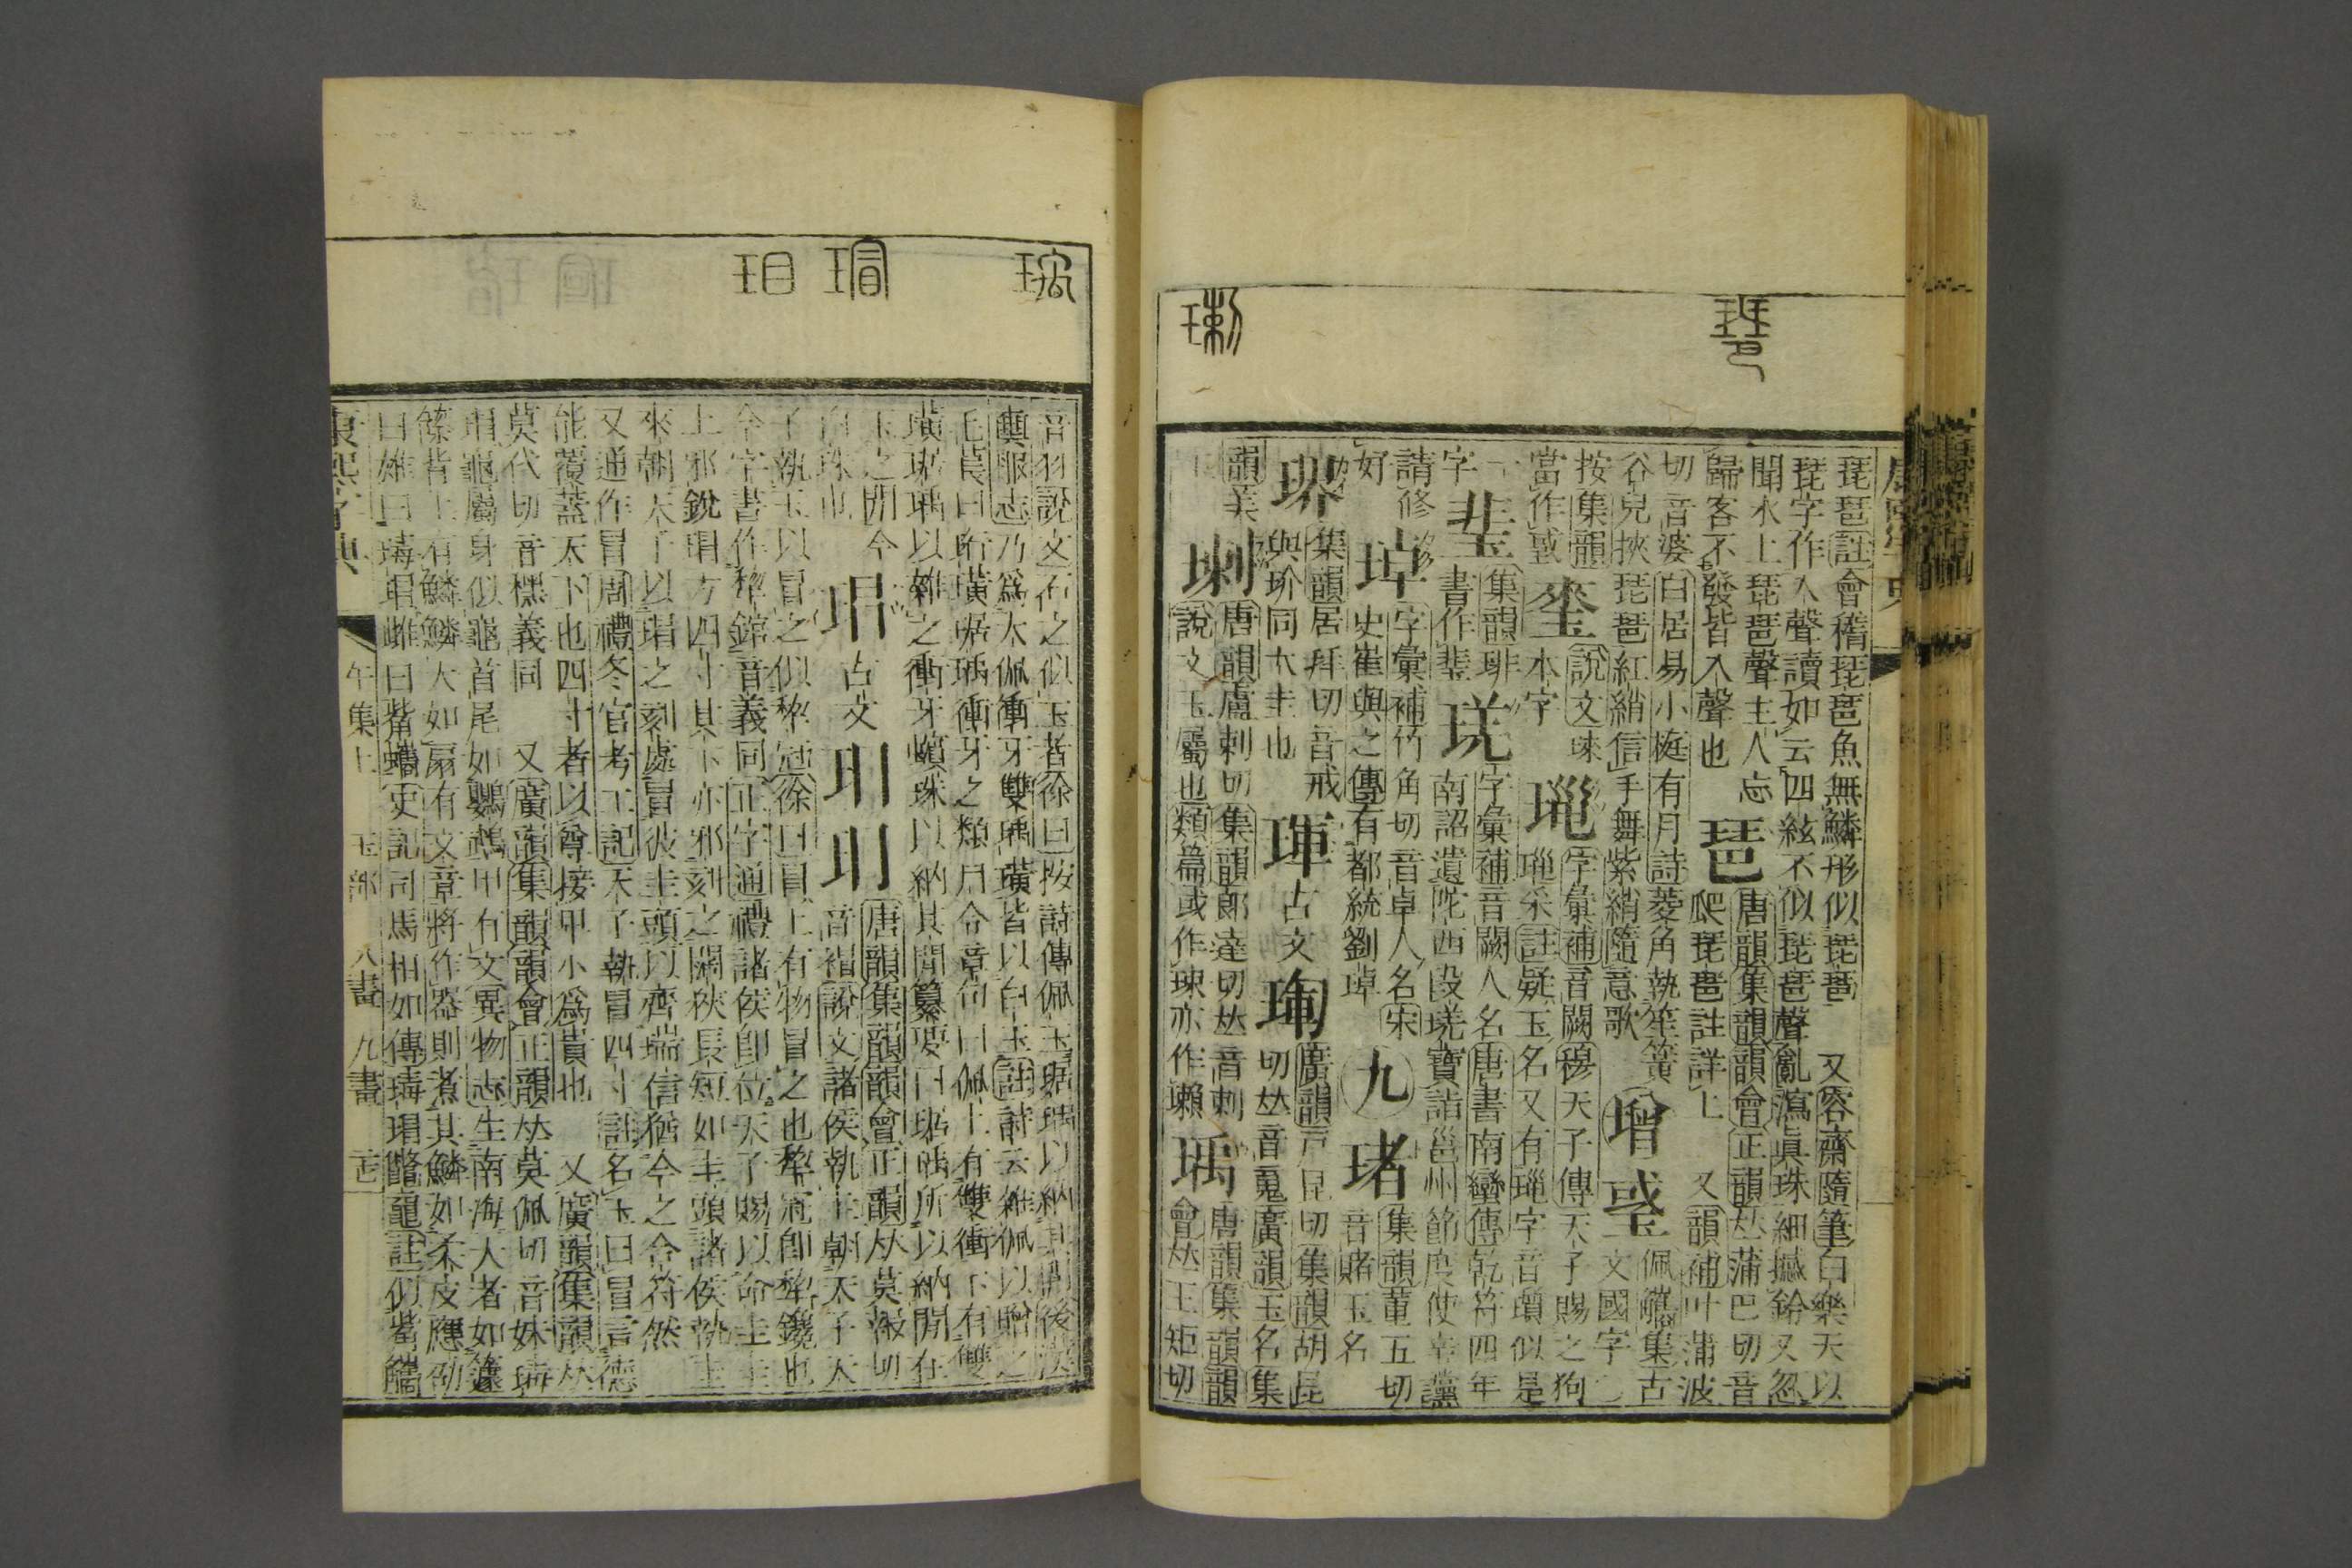 琵琶註會稽琵琶魚無鱗形似琵琶 又容齋隨筆白樂天以
琵字作入聲讀如云四絃不似琵琶聲亂瀉眞珠細撼鈴又忽
聞水上琵琶聲主人忘
歸客不發皆入聲也
琶
唐韻集韻韻會正韻𠀤蒲巴切音
爬琵琶註詳上 又韻補叶蒲波
切音婆白居易小庭有月詩菱角執笙簧
谷兒抹琵琶紅綃信手舞紫綃隨意歌
增
琧
佩觿集古
文國字
按集韻
當作㦽
琜
說文琜
本字
㻡
字彙補音闕穆天子傳天子賜之狗
璅采註疑玉名又有璅字音瑣似是
字
琹
集韻琲
書作琹
字彙補音闕人名唐書南蠻傳乾符四年
南詔遣陀西段㻠寶詣邕州節度使辛讜
請修
好
㻐
字彙補竹角切音卓人名宋
史崔與之傳有都統劉㻐
九
琽
集韻董五切
音賭玉名
㻢
集韻居拜切音戒
與玠同大圭也
琿
古文
㻁
廣韻戸昆切集韻胡昆
切𠀤音䰟廣韻玉名集
韻美
玉
㻝
唐韻盧剌切集韻郞達切𠀤音剌
說文玉屬也類篇或作㻋亦作瓎
瑀
唐韻集韻韻
會𠀤王矩切
音羽說文石之似玉者徐曰按詩傳佩玉琚瑀以納其閒後漢
輿服志乃爲大佩衝牙雙瑀璜皆以白玉註詩云雜佩以贈之
毛萇曰珩璜琚瑀衝牙之類月令章句曰佩上有雙衝下有雙
璜琚瑀以雜之衝牙蠙珠以納其閒纂要曰琚瑀所以納閒在
玉之閒今
白珠也
瑁
古文
玥
玥
唐韻集韻韻會正韻𠀤莫報切
音帽說文諸侯執圭朝天子天
子執玉以冒之似犂冠徐曰冒上有物冒之也犂冠卽犂鑱也
今字書作犂錧音義同正字通禮諸侯卽位天子賜以命圭圭
上邪銳瑁方四寸其下亦邪刻之闊狹長短如圭頭諸侯執圭
來朝天子以瑁之刻處冒彼圭頭以齊瑞信猶今之合符然
又通作冒周禮冬官考工記天子執冒四寸註名玉曰冒言德
能覆蓋天下也四寸者以尊接卑小爲貴也 又廣韻集韻𠀤
莫代切音㯃義同 又廣韻集韻韻會正韻𠀤莫佩切音妹瑇
瑁龜屬身似龜首尾如鸚鵡甲有文異物志生南海大者如籧
篨背上有鱗鱗大如扇有文章將作器則煮其鱗如柔皮應劭
曰雄曰瑇瑁雌曰觜蠵史記司馬相如傳瑇瑁鼈黿註似觜蠵
康熙字典 午集上 玉部 八畫 九畫